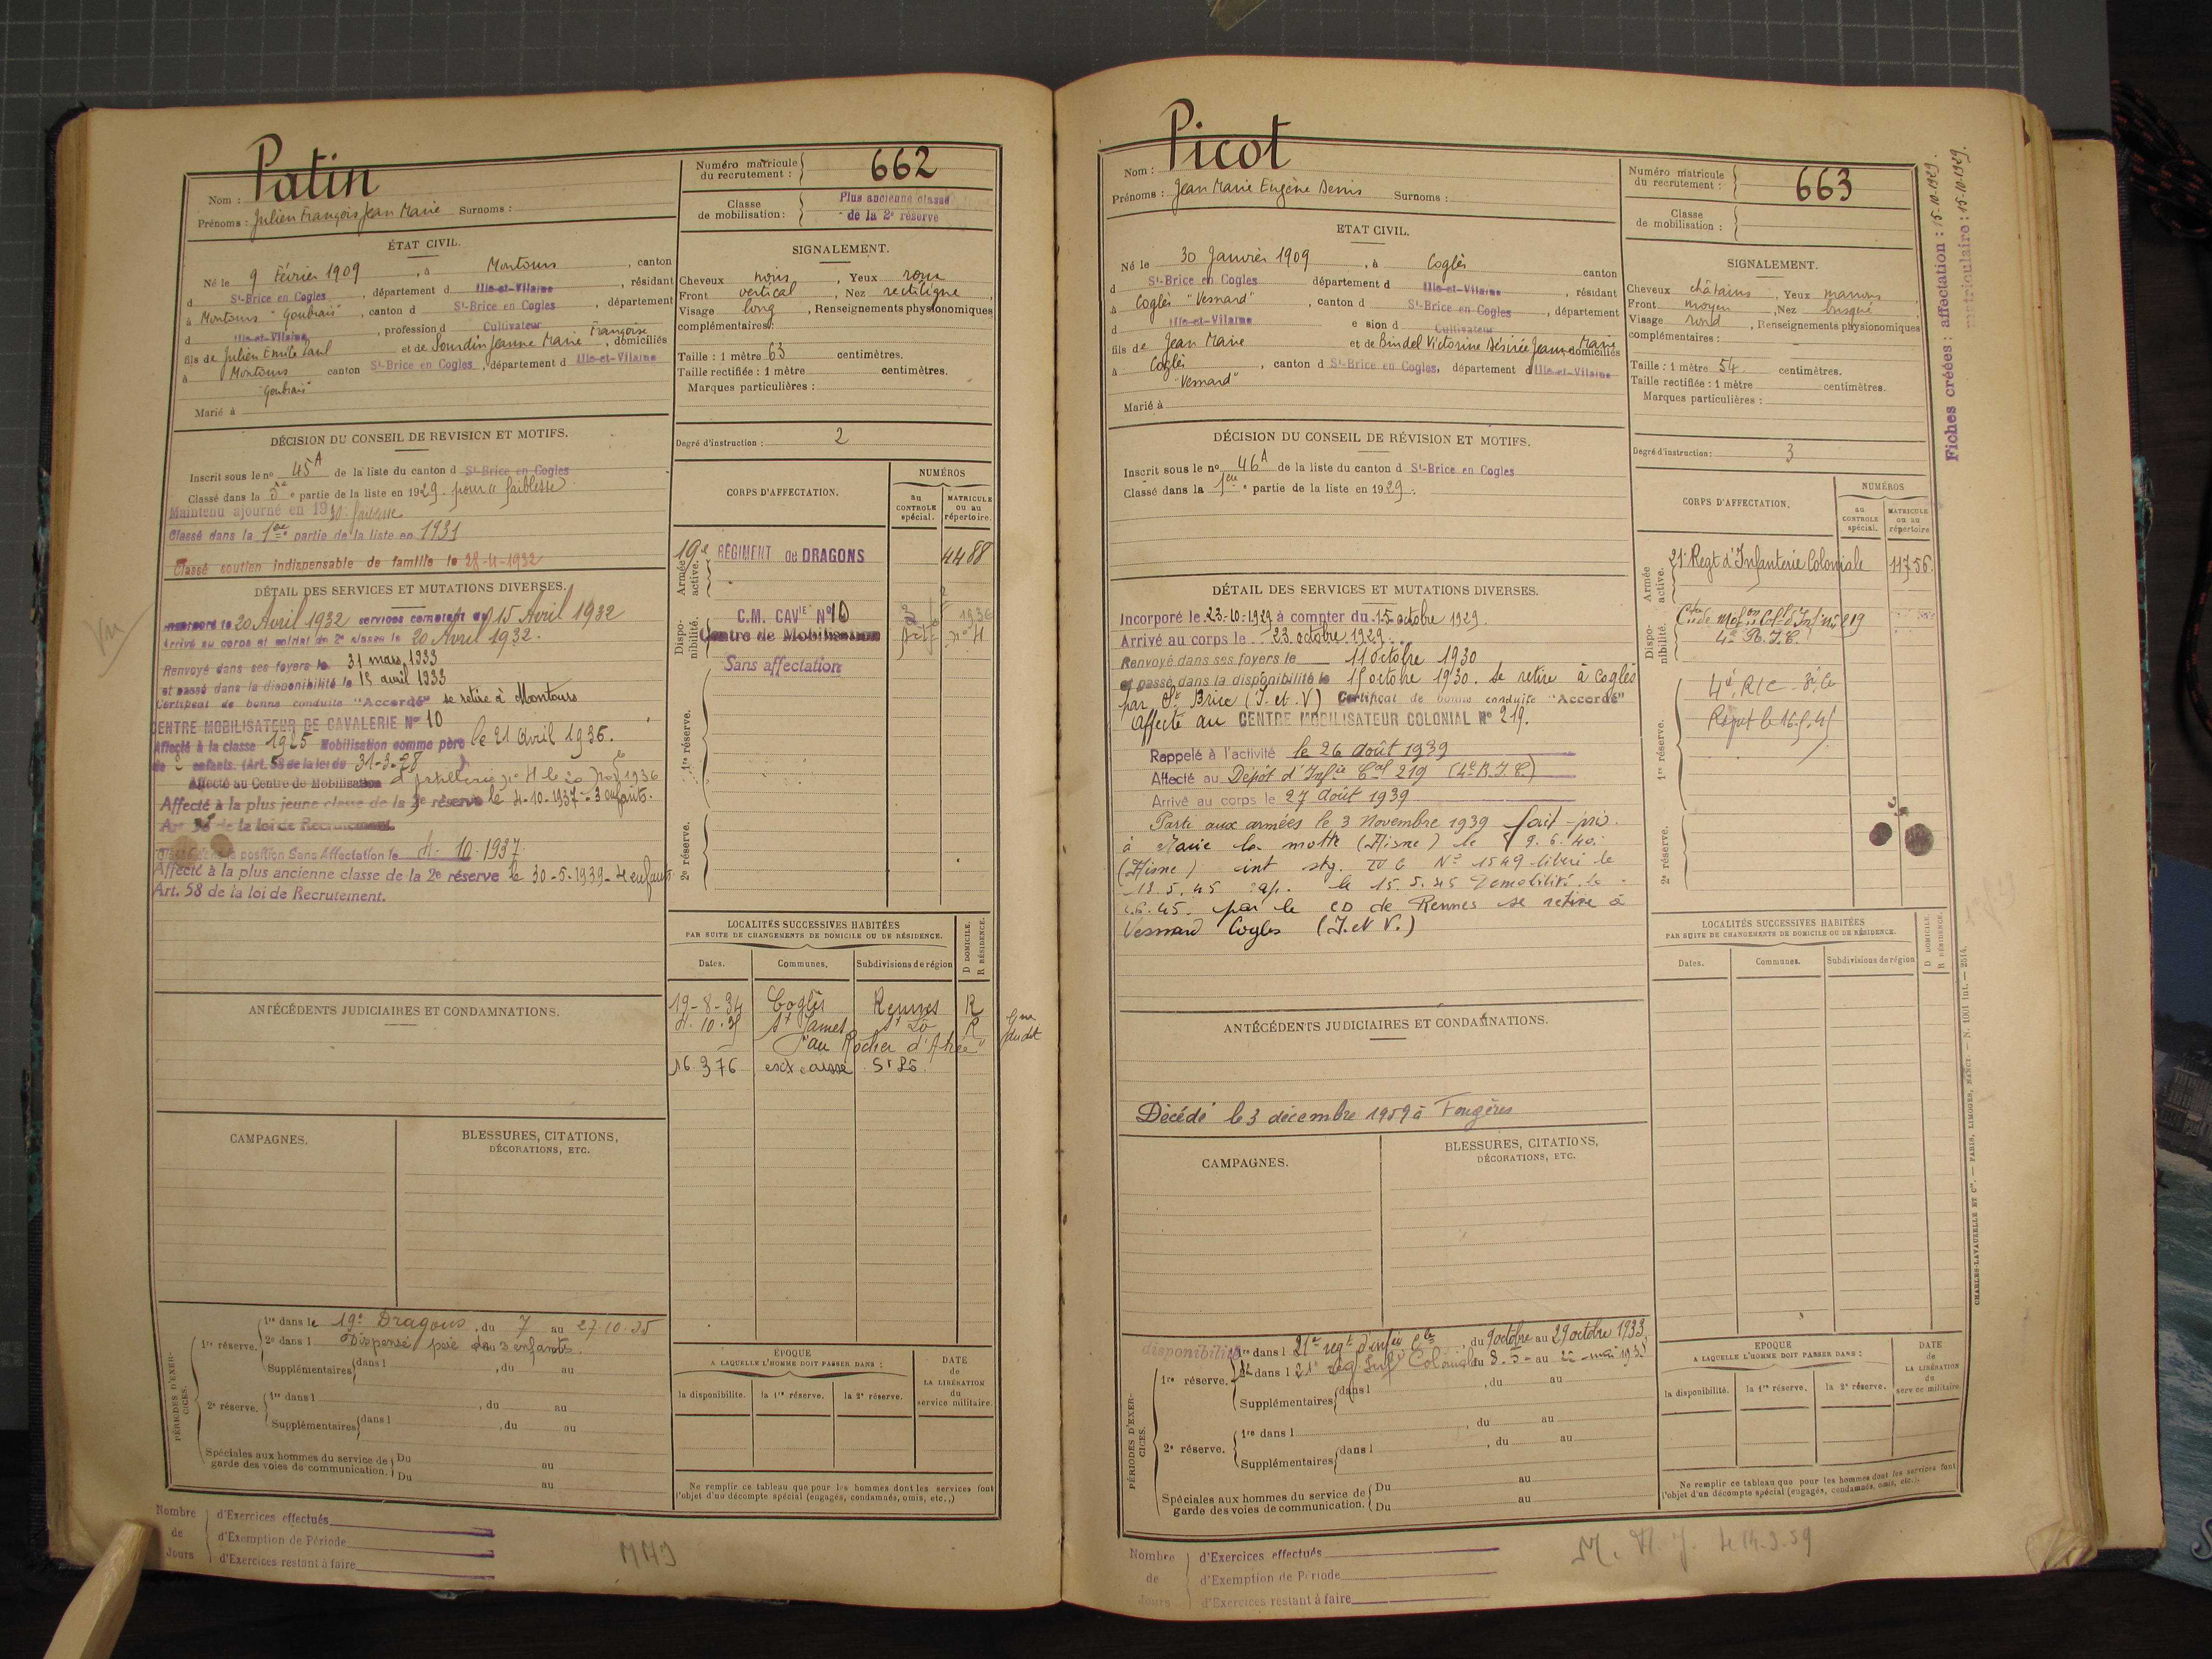 Patin
Nom :
Prénoms : Julien François Jean Marie Surnoms :
Numéro matricule du recrutement : 662
Classe de mobilisation : Plus ancienne classe de la 2e réserve
ÉTAT CIVIL.
Né le 9 Février 1909, à Montours, canton
d St-Brice en Cogles, département d Ille-et-Vilaine, résidant
à Montours "Goubrais", canton d St-Brice en Cogles, département
d Ille-et-Vilaine, profession d Cultivateur
fils de Julien Emile Paul et de Sourdin Jeanne Marie Françoise, domiciliés
à Montours canton St-Brice en Cogles, département d Ille-et-Vilaine
"Goubrais"
Marié à
SIGNALEMENT.
Cheveux noirs, Yeux roux
Front vertical, Nez rectiligne,
Visage long, Renseignements physionomiques
complémentaires :
Taille : 1 mètre 63 centimètres.
Taille rectifiée : 1 mètre centimètres.
Marques particulières :
Degré d'instruction : 2
DÉCISION DU CONSEIL DE REVISION ET MOTIFS.
Inscrit sous le no 45A de la liste du canton d St-Brice en Cogles
Classé dans la 5e partie de la liste en 1929 pour "faiblesse"
Maintenu ajourné en 1930 faiblesse
Classé dans la 1ère partie de la liste en 1931
Classé soutien indispensable de famille le 28-4-1932
CORPS D'AFFECTATION.
NUMÉROS
au CONTROLE spécial.
MATRICULE ou au répertoire.
Armée active.
19e RÉGIMENT de DRAGONS 4488
Disponibilité.
C.M. CAVIE No 10
Centre de Mobilisation
1936
Sans affectation
1re réserve.
2e réserve.
DÉTAIL DES SERVICES ET MUTATIONS DIVERSES.
Incorporé le 20 Avril 1932 services comptent du 15 Avril 1932
Arrivé au corps et soldat de 2e classe le 20 Avril 1932.
Renvoyé dans ses foyers le 31 mars 1933
et passé dans la disponibilité le 15 avril 1933
Certificat de bonne conduite "Accordé" se retire à Montours
CENTRE MOBILISATEUR DE CAVALERIE No 10
Affecté à la classe 1925 Mobilisation comme père le 21 avril 1936.
de 2 enfants. (Art. 58 de la loi du 31-3-28)
Affecté au Centre de Mobilisation d'artillerie no 4 le 20 1936
Affecté à la plus jeune classe de la 2e réserve le 4-10-1937 - 3 enfants.
Art. 58 de la loi de Recrutement.
Classé dans la position Sans Affectation le 4-10-1937
Affecté à la plus ancienne classe de la 2e réserve le 30-5-1939 - 4 enfants
Art. 58 de la loi de Recrutement.
LOCALITÉS SUCCESSIVES HABITÉES
PAR SUITE DE CHANGEMENTS DE DOMICILE OU DE RÉSIDENCE.
D DOMICILE.
R RÉSIDENCE.
Dates. Communes. Subdivisions de région
19-8-34 Coglès Rennes R
4.10.35 St James St Lo R
"au Rocher d'
16 3 76 St Lô
ANTÉCÉDENTS JUDICIAIRES ET CONDAMNATIONS.
CAMPAGNES.
BLESSURES, CITATIONS,
DÉCORATIONS, ETC.
PÉRIODES D'EXERCICES.
1re réserve.
1re dans le 19e Dragons, du 7 au 27.10.35
2e dans l Dispensé père de 3 enfants.
Supplémentaires dans l , du au
2e réserve.
1re dans l , du au
Supplémentaires dans l , du au
Spéciales aux hommes du service de garde des voies de communication. Du au
Du au
ÉPOQUE
A LAQUELLE L'HOMME DOIT PASSER DANS :
la disponibilité. la 1re réserve. la 2e réserve.
DATE de LA LIBÉRATION du service militaire.
Ne remplir ce tableau que pour les hommes dont les services font
l'objet d'un décompte spécial (engagés, condamnés, omis, etc.,)
Nombre de Jours
d'Exercices effectués
d'Exemption de Période
d'Exercices restant à faire
Picot
Nom :
Prénoms : Jean Marie Eugène Denis Surnoms :
Numéro matricule du recrutement : 663
Classe de mobilisation :
ETAT CIVIL.
Né le 30 Janvier 1909, à Coglès canton
d St-Brice en Cogles département d Ille-et-Vilaine, résidant
à Coglès "Vesnard", canton d St-Brice en Cogles, département
d Ille-et-Vilaine e sion d Cultivateur
fils de Jean Marie et de Bindel Victorine Désirée Jeanne Marie domiciliés
à Coglès, canton d St-Brice en Cogles, département d Ille-et-Vilaine
"Vesnard"
Marié à
SIGNALEMENT.
Cheveux châtains, Yeux marrons,
Front moyen, Nez busqué
Visage rond, Renseignements physionomiques
complémentaires :
Taille : 1 mètre 54 centimètres.
Taille rectifiée : 1 mètre centimètres.
Marques particulières :
Degré d'instruction : 3
Fiches créées : affectation : 15-10-1929.
matriculaire : 15-10-1929.
DÉCISION DU CONSEIL DE RÉVISION ET MOTIFS.
Inscrit sous le no 46A de la liste du canton d St-Brice en Cogles
Classé dans la 1ère partie de la liste en 1929.
CORPS D'AFFECTATION.
NUMÉROS
au CONTROLE spécial.
MATRICULE ou au répertoire
Armée active.
21e Regt d'Infanterie Coloniale 11756.
Disponibilité.
Cen 219
4e R.I.C.
1re réserve.
4e RIC
2e réserve.
DÉTAIL DES SERVICES ET MUTATIONS DIVERSES.
Incorporé le 23-10-1929 à compter du 15 octobre 1929.
Arrivé au corps le 23 octobre 1929.
Renvoyé dans ses foyers le 11 octobre 1930
et passé dans la disponibilité le 15 octobre 1930. se retire à Coglès
par St Brice (I. et. V) Certificat de bonne conduite "Accordé"
affecté au CENTRE MOBILISATEUR COLONIAL No 219.
Rappelé à l'activité le 26 août 1939
Affecté au Dépôt d'Infie Cale 219 (4e R.I.C)
Arrivé au corps le 27 août 1939
Parti aux armées le 3 Novembre 1939 fait pris.
à la motte (Aisne) le 9.6.40.
(Aisne) int stg. IV C No 1549 libéré le
18.5.45 rap. le 15.5.45 Démobilisé le
.6.45. par le CD de Rennes se retire à
Vesnard Cogles (I. et V.)
ANTÉCÉDENTS JUDICIAIRES ET CONDAMNATIONS.
Décédé le 3 décembre 1959 à Fougères
LOCALITÉS SUCCESSIVES HABITÉES
PAR SUITE DE CHANGEMENTS DE DOMICILE OU DE RÉSIDENCE.
Dates. Communes. Subdivisions de région
D DOMICILE.
R RÉSIDENCE.
CAMPAGNES.
BLESSURES, CITATIONS,
DÉCORATIONS, ETC.
PÉRIODES D'EXERCICES.
disponibilité
1re réserve.
1re dans l 21e regt d'infie cle, du 9 octobre au 29 octobre 1933.
2e dans l 21e Reg Inf Coloniale du 8.5 au mai 193
Supplémentaires dans l , du au
2e réserve.
1re dans l , du au
Supplémentaires dans l , du au
Spéciales aux hommes du service de garde des voies de communication. Du au
Du au
EPOQUE
A LAQUELLE L'HOMME DOIT PASSER DANS :
la disponibilité. la 1re réserve. la 2e réserve.
DATE de LA LIBÉRATION du service militaire
Ne remplir ce tableau que pour les hommes dont les services font
l'objet d'un décompte spécial (engagés, condamnés, omis, etc.,).
CHARLES-LAVAUZELLE ET Cie. — PARIS, LIMOGES, NANCY. — N. 1001 int. — 2514.
Nombre de Jours
d'Exercices effectués
d'Exemption de Période
d'Exercices restant à faire